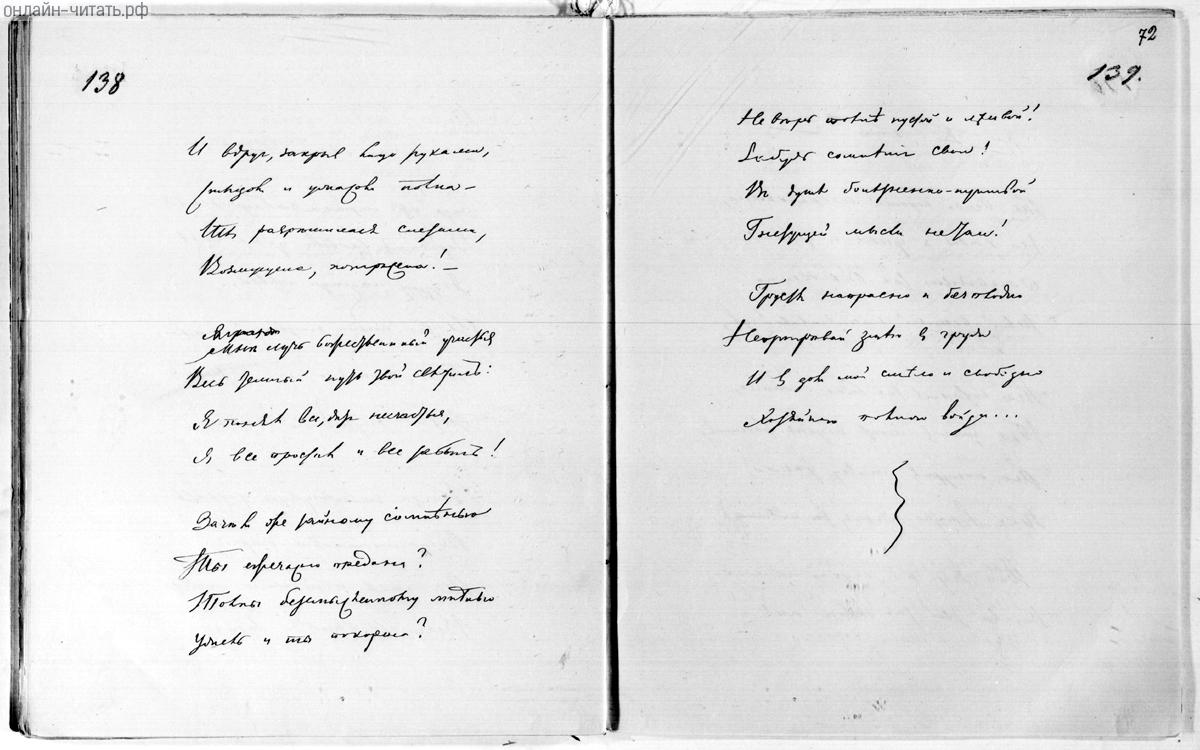 онлайн-читать.рф
138
И вдруг, закрыв лицо руками,
Стыдом и ужасом полна –
Ты разрешилася слезами,
Возмущена, потрясена! –
лучь божественный участья
Весь темный путь твой осветилъ:
Я понялъ все, дитя несчастья,
Я все простилъ и все забылъ!
Зачем же тайному сомнѣнью
Ты ежечасно предана?
Толпы безсмысленному мнѣнью
Ужель и ты покорена?
72
139.
Не верь толпѣ пустой и лживой!
Забудь сомнѣнія свои!
Въ душѣ болѣзненно-пугливой
Гнетущей мысли не таи!
Грустя напрасно и безплодно
Непригревай змѣю в груди
И в дом мой смѣло и свободно
Хозяйкою полною войди...